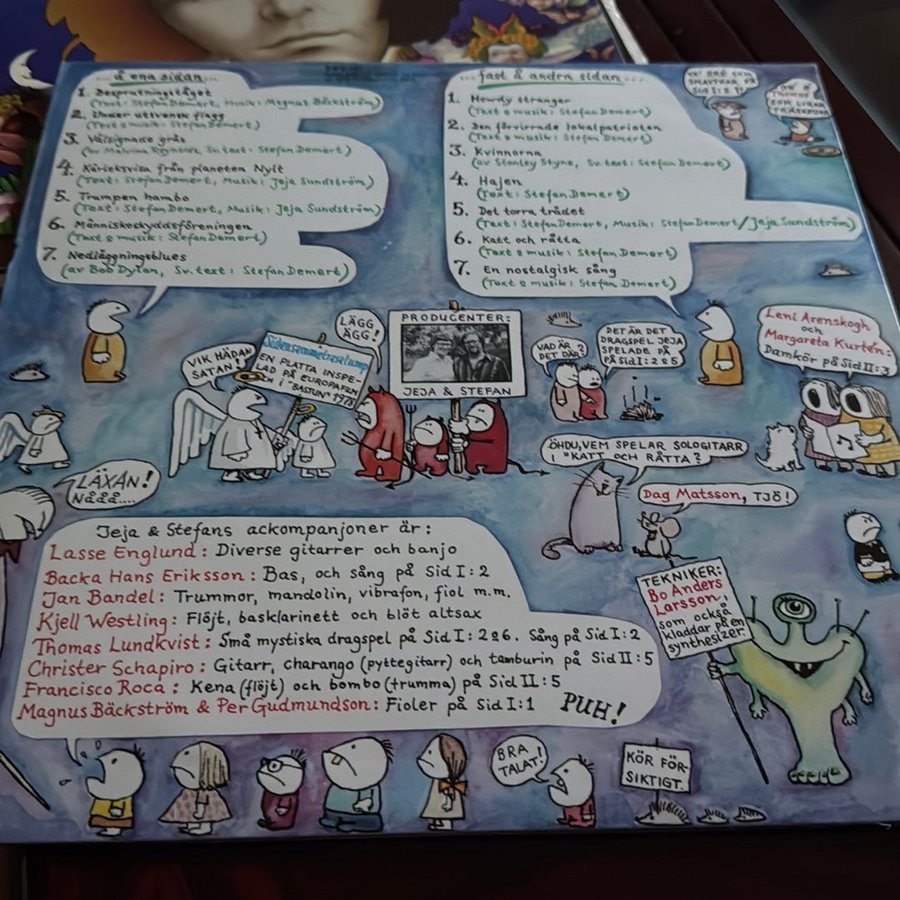 ...å ena sidan...
1. Besprutningståget
(Text: Stefan Demert, Musik: Magnus Bäckström)
2. Under utsvensk flagg
(Text & musik: Stefan Demert)
3. Välsignade gräs
(av Malvina Reynolds, Sv. text: Stefan Demert)
4. Kärleksvisa från planeten Nylt
(Text: Stefan Demert, Musik: Jeja Sundström)
5. Trampen hambo
(Text: Stefan Demert, Musik: Jeja Sundström)
6. Människoskyddsföreningen
(Text & musik: Stefan Demert)
7. Nedläggningsblues
(av Bob Dylan, Sv. text: Stefan Demert)
...fast å andra sidan...
1. Howdy stranger
(Text: Stefan Demert)
2. Den förvirrade lokalpatrioten
(Text & musik: Stefan Demert)
3. Kvinnorna
(av Stanley Styne, Sv. text: Stefan Demert)
4. Hajen
(Text: Stefan Demert)
5. Det torra trädet
(Text: Stefan Demert, Musik: Stefan Demert/Jeja Sundström)
6. Katt och råtta
(Text & musik: Stefan Demert)
7. En nostalgisk sång
(Text & musik: Stefan Demert)
SID I: 2?
Thomas
SOM LIRAR
LÄGG
ÄGG!
VIK HÄDAN
SATAN!
EN PLATTA INSPE-
LAD PÅ EUROPAFILM
OCH I "BASTUN" 1978
PRODUCENTER:
JEJA & STEFAN
VAD ÄR
DET DÄR?
DET ÄR DET
DRAGSPEL JEJA
SPELADE PÅ
PÅ SID I: 2 & 5
Leni Arenskogh
och
Margareta Kurtén:
Damkör på Sid II: 3
ÖHDU, VEM SPELAR SOLOGITARR
I "KATT OCH RÅTTA?
Dag Matsson, TJÖ!
LÄXAN!
NÅÅÅ....
Jeja & Stefans ackompanjoner är:
Lasse Englund: Diverse gitarrer och banjo
Backa Hans Eriksson: Bas, och sång på Sid I: 2
Jan Bandel: Trummor, mandolin, vibrafon, fiol m.m.
Kjell Westling: Flöjt, basklarinett och blöt altsax
Thomas Lundkvist: Små mystiska dragspel på Sid I: 2 & 6. Sång på Sid I: 2
Christer Schapiro: Gitarr, charango (pyttegitarr) och tamburin på Sid II: 5
Francisco Roca: Kena (flöjt) och bombo (trumma) på Sid II: 5
Magnus Bäckström & Per Gudmundson: Fioler på Sid I: 1
PUH!
TEKNIKER:
Bo Anders
Larsson,
som också
kladdar på en
synthesizer.
BRA
TALAT!
KÖR FÖR-
SIKTIGT.